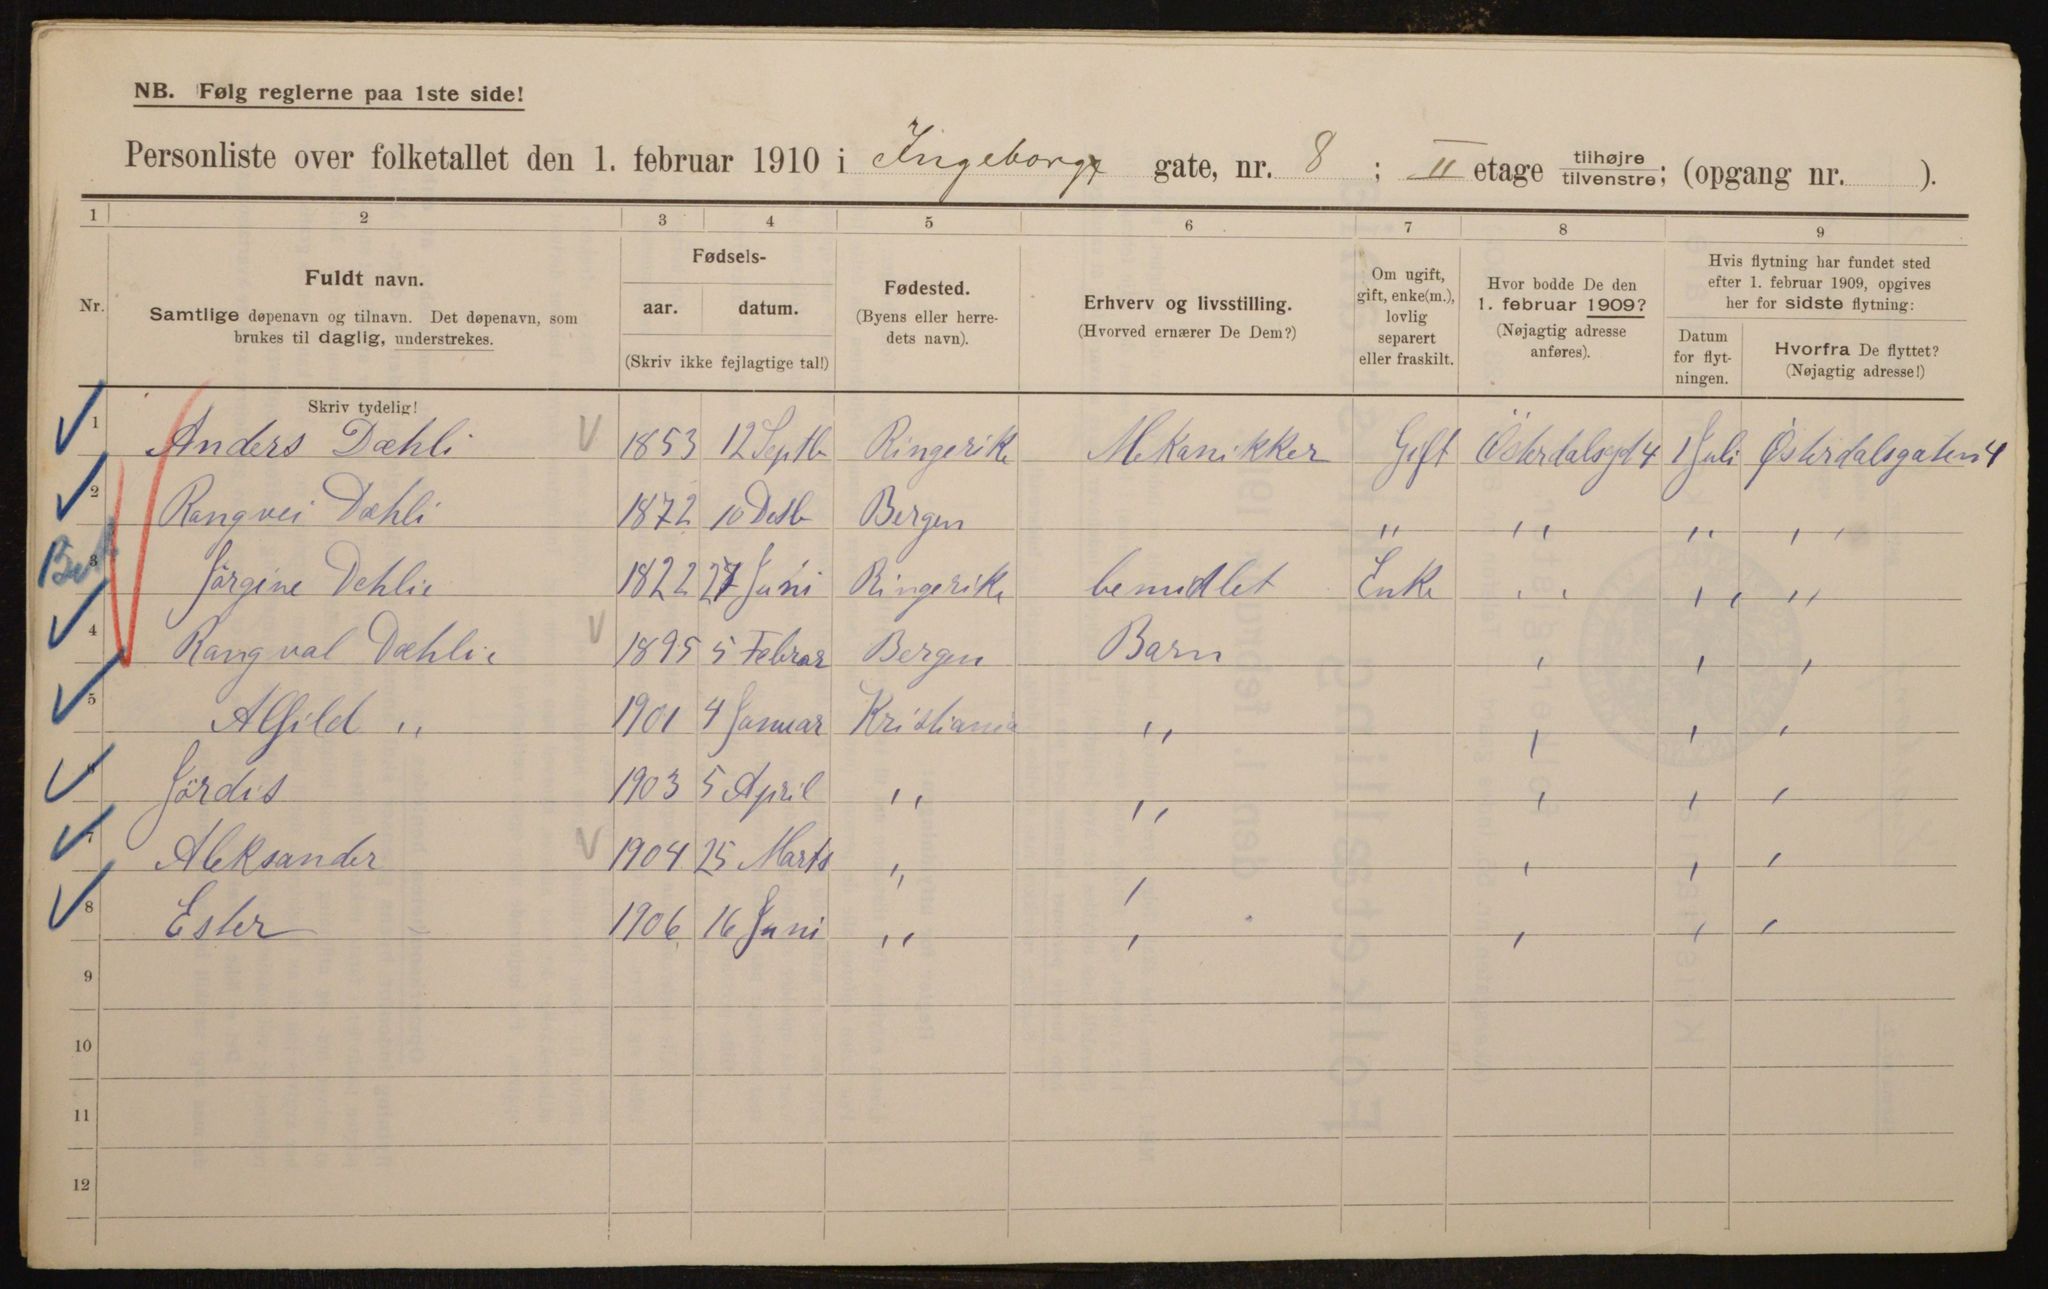 NB. Følg reglerne paa 1ste side!
Personliste over folketallet den 1. februar 1910 i Ingeborg gate, nr. 8 ; II etage tilhøjre tilvenstre; (opgang nr. ).
1 2 3 4 5 6 7 8 9
Nr.
Fuldt navn.
Samtlige døpenavn og tilnavn. Det døpenavn, som
brukes til daglig, understrekes.
Fødsels-
aar. datum.
(Skriv ikke fejlagtige tal!)
Fødested.
(Byens eller herre-
dets navn).
Erhverv og livsstilling.
(Hvorved ernærer De Dem?)
Om ugift,
gift, enke(m.),
lovlig
separert
eller fraskilt.
Hvor bodde De den
1. februar 1909?
(Nøjagtig adresse
anføres).
Hvis flytning har fundet sted
efter 1. februar 1909, opgives
her for sidste flytning:
Datum
for flyt-
ningen.
Hvorfra De flyttet?
(Nøjagtig adresse!)
Skriv tydelig!
1 Anders Dæhli 1853 12 Septb Ringerike Mekanikker Gift Österdalsgd 4 1 Juli Østerdalsgaten 4
2 Rangvei Dæhli 1872 10 Desb Bergen " " " "
3 Jörgine Dehlie 1822 27 Juni Ringerike bemidlet Enke " " "
4 Rangval Dæhlie 1895 5 Febrar Bergen Barn " " "
5 Alfild " 1901 4 Januar Kristiania " " " "
6 Jördis 1903 5 April " " " " "
7 Aleksander 1904 25 Marts " " " " "
8 Ester 1906 16 Juni " " " " "
9
10
11
12